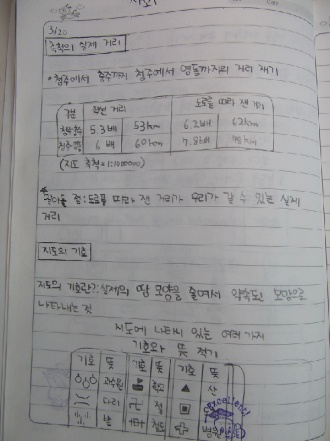 지도
3/20
축척의 실제 거리
청주에서 충주까지 청주에서 영동까지의 거리 재기
구분 직선 거리 도로를 따라 잰 거리
5.3배 53km 6.2배 62km
6배 60km 7.8배 78km
(지도 축척=1:1000000)
알아둘 점:도로를 따라 잰 거리가 우리가 갈 수 있는 실제
거리
지도의 기호
지도의 기호란?:실제의 땅 모양을 줄여서 약속된 모양으로
나타내는 것
지도에 나타나 있는 여러 가지
기호와 뜻 적기
기호 뜻 기호 뜻 기호 뜻
과수원 학교 ▲ 산
다리 卍 절
밭 병원
excellent!